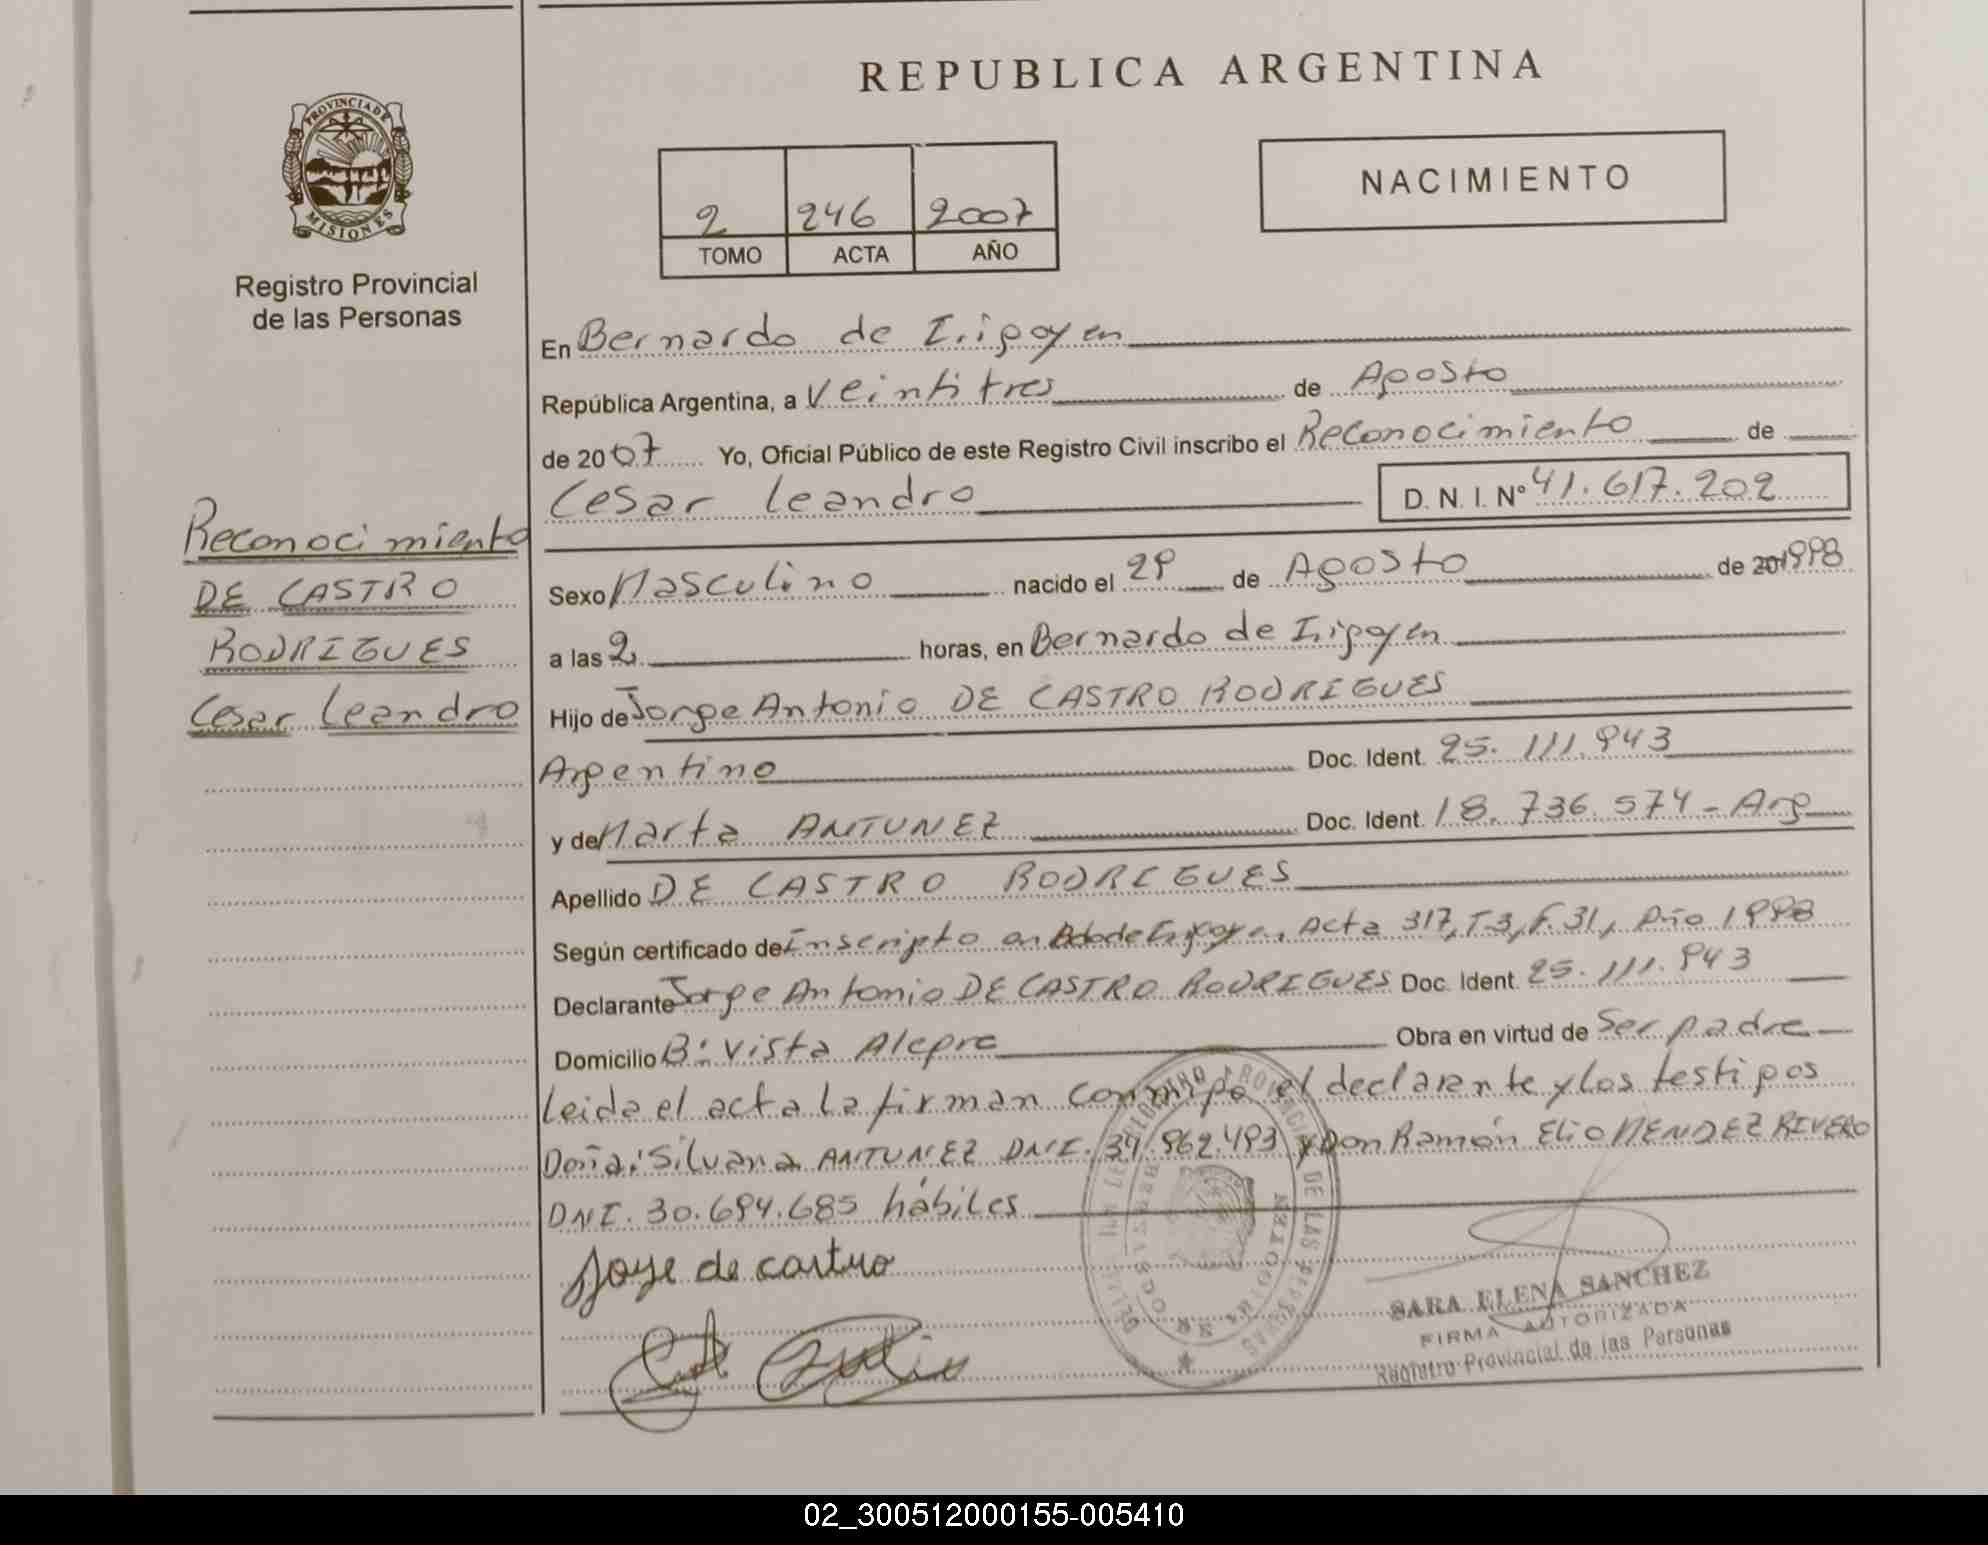 REPUBLICA ARGENTINA
PROVINCIA DE
MISIONES
Registro Provincial
de las Personas
2 246 2007
TOMO ACTA AÑO
NACIMIENTO
En Bernardo de Irigoyen
República Argentina, a Veintitres de Agosto
de 2007 Yo, Oficial Público de este Registro Civil inscribo el Reconocimiento de
Cesar Leandro D. N. I. Nº 41.617.202
Reconocimiento
DE CASTRO
RODRIGUES
Cesar Leandro
Sexo Masculino nacido el 29 de Agosto de 1998
a las 2 horas, en Bernardo de Irigoyen
Hijo de Jorge Antonio DE CASTRO RODRIGUES
Argentino Doc. Ident. 25.111.943
y de Marta ANTUNEZ Doc. Ident. 18.736.574 - Arg
Apellido DE CASTRO RODRIGUES
Según certificado de Inscripto en Bdo de Irigoyen, Acta 317, T.3, F.31, Año 1998
Declarante Jorge Antonio DE CASTRO RODRIGUES Doc. Ident. 25.111.943
Domicilio Bº Vista Alegre Obra en virtud de Ser padre
Leida el acta la firman conmigo el declarante y los testigos
Doña: Silvana ANTUNEZ DNI. 862.493 y Don Ramón Elio MENDEZ RIVERO
DNI. 30.694.685 hábiles
Jorge de castro
SARA ELENA SANCHEZ
FIRMA AUTORIZADA
Registro Provincial de las Personas
02_300512000155-005410